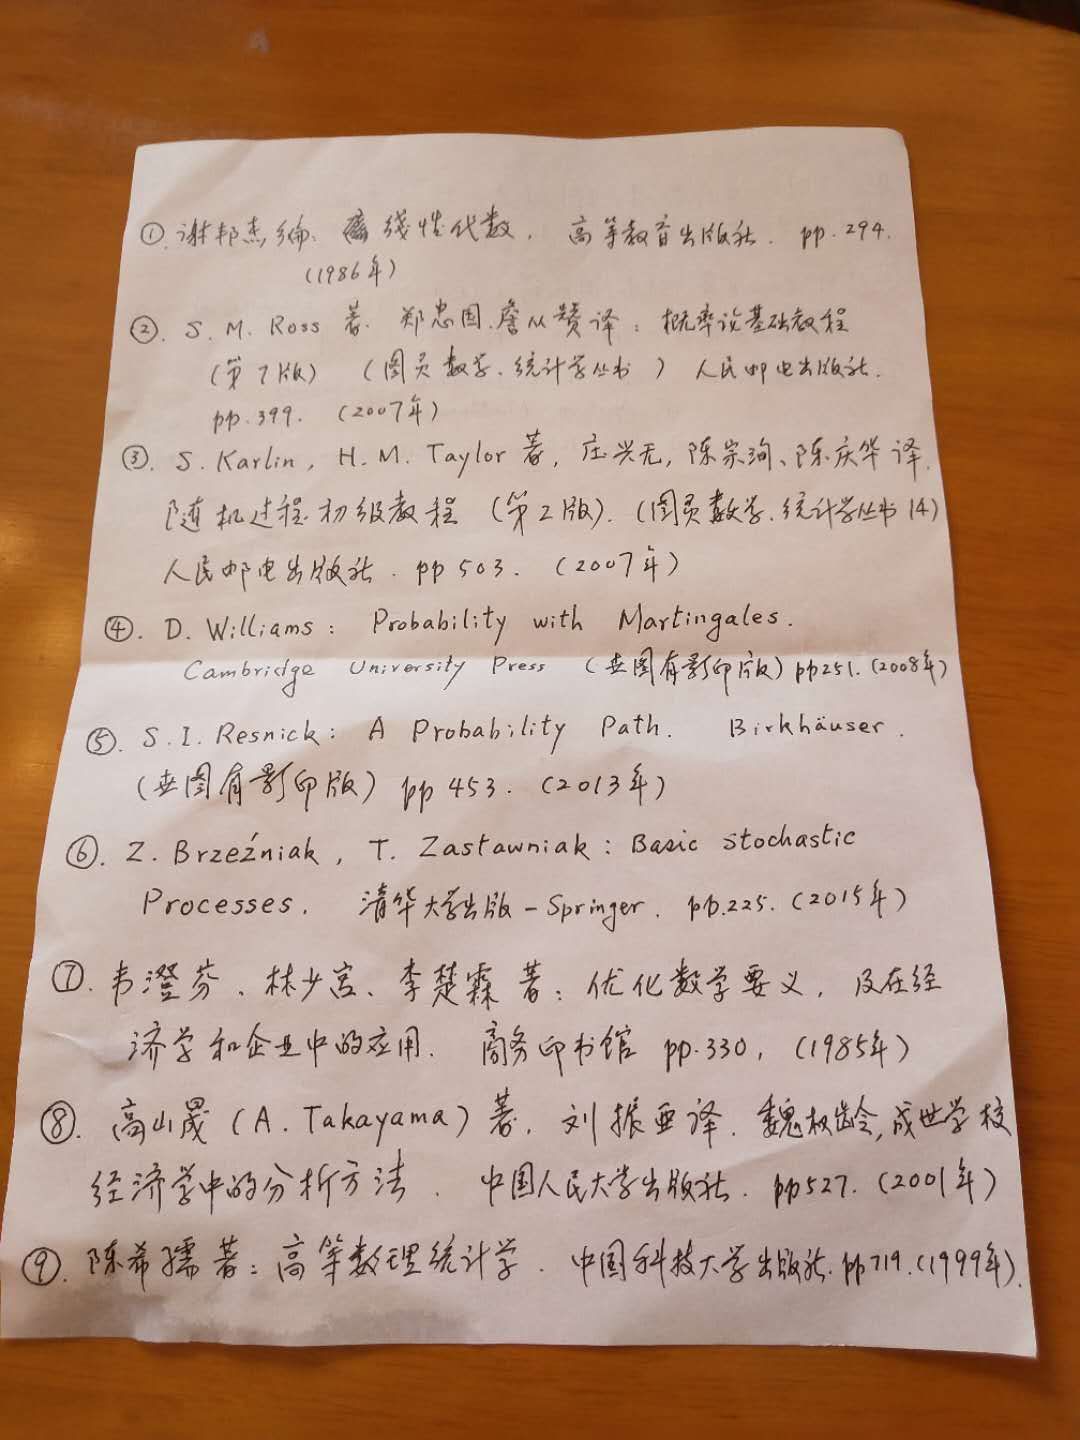 ①. 谢邦杰编: 线性代数. 高等教育出版社. pp.294.
(1986年)
②. S. M. Ross 著. 郑忠国.詹从赞译: 概率论基础教程
(第7版) (图灵数学.统计学丛书) 人民邮电出版社.
pp.399. (2007年)
③. S. Karlin, H. M. Taylor 著, 庄兴无, 陈宗洵、陈庆华译.
随机过程初级教程 (第2版). (图灵数学.统计学丛书14)
人民邮电出版社. pp 503. (2007年)
④. D. Williams: Probability with Martingales.
Cambridge University Press (世图有影印版) pp251. (2008年)
⑤. S.I. Resnick: A Probability Path. Birkhäuser.
(世图有影印版) pp 453. (2013年)
⑥. Z. Brzeźniak, T. Zastawniak: Basic Stochastic
Processes. 清华大学出版-Springer. pp.225. (2015年)
⑦. 韦澄芬、林少宫、李楚霖著: 优化数学要义, 及在经
济学和企业中的应用. 商务印书馆 pp.330, (1985年)
⑧. 高山晟 (A. Takayama) 著, 刘振亚译. 魏权龄,成世学校
经济学中的分析方法. 中国人民大学出版社. pp527. (2001年)
⑨. 陈希孺著: 高等数理统计学. 中国科技大学出版社. pp719. (1999年).